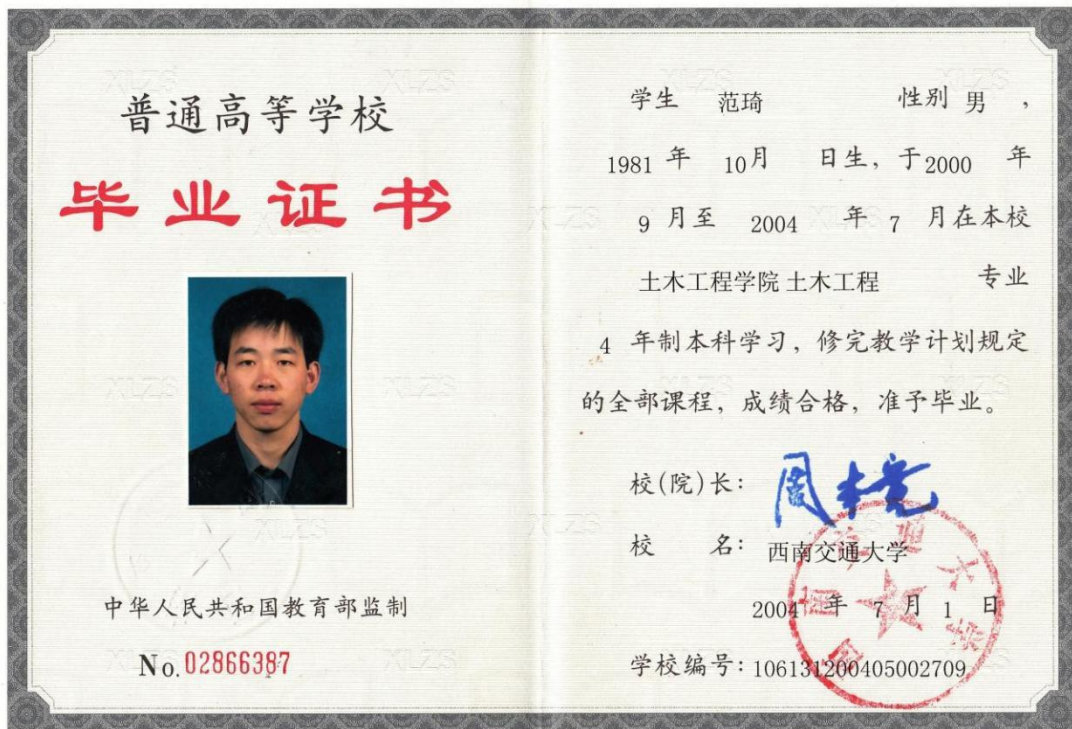 普通高等学校
毕业证书
中华人民共和国教育部监制
No. 02866387
学生 范琦 性别 男，
1981 年 10月 日生，于2000 年
9 月至 2004 年 7 月在本校
土木工程学院 土木工程 专业
4 年制本科学习，修完教学计划规定
的全部课程，成绩合格，准予毕业。
校(院)长：
校 名：西南交通大学
2004 年 7 月 1 日
学校编号：106131200405002709
西南交通大学
XLZS